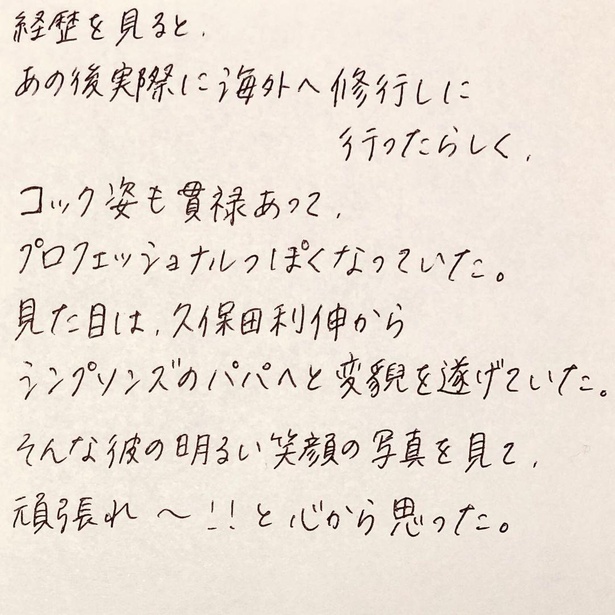 経歴を見ると、
あの後実際に海外へ修行しに
行ったらしく、
コック姿も貫禄あって、
プロフェッショナルっぽくなっていた。
見た目は、久保田利伸から
シンプソンズのパパへと変貌を遂げていた。
そんな彼の明るい笑顔の写真を見て、
頑張れ〜!!と心から思った。